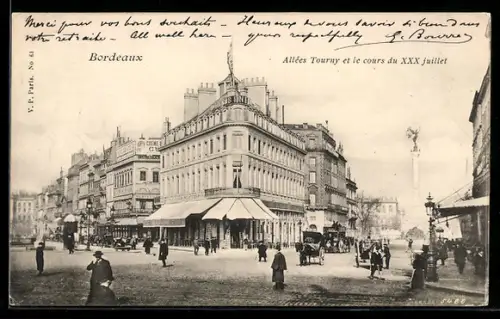 Merci pour vos bons souhaits - Heureux de vous savoir si bien dans
votre retraite - All well here - yours respectfully G. Bourrez
Bordeaux
Allées Tourny et le cours du XXX juillet
V. P. Paris. No 64